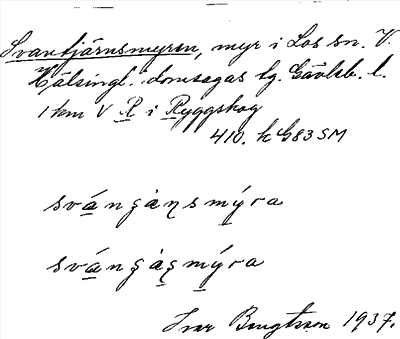 Svantjärnsmyren, myr i Los sn. V.
Hälsingl. domsagas tg. Gävleb. l.
1 km V R i Ryggskog
410. k G83 SM
svánʂàɳsmýra
svánʂàʂmýra
Ivar Bengtsson 1937.